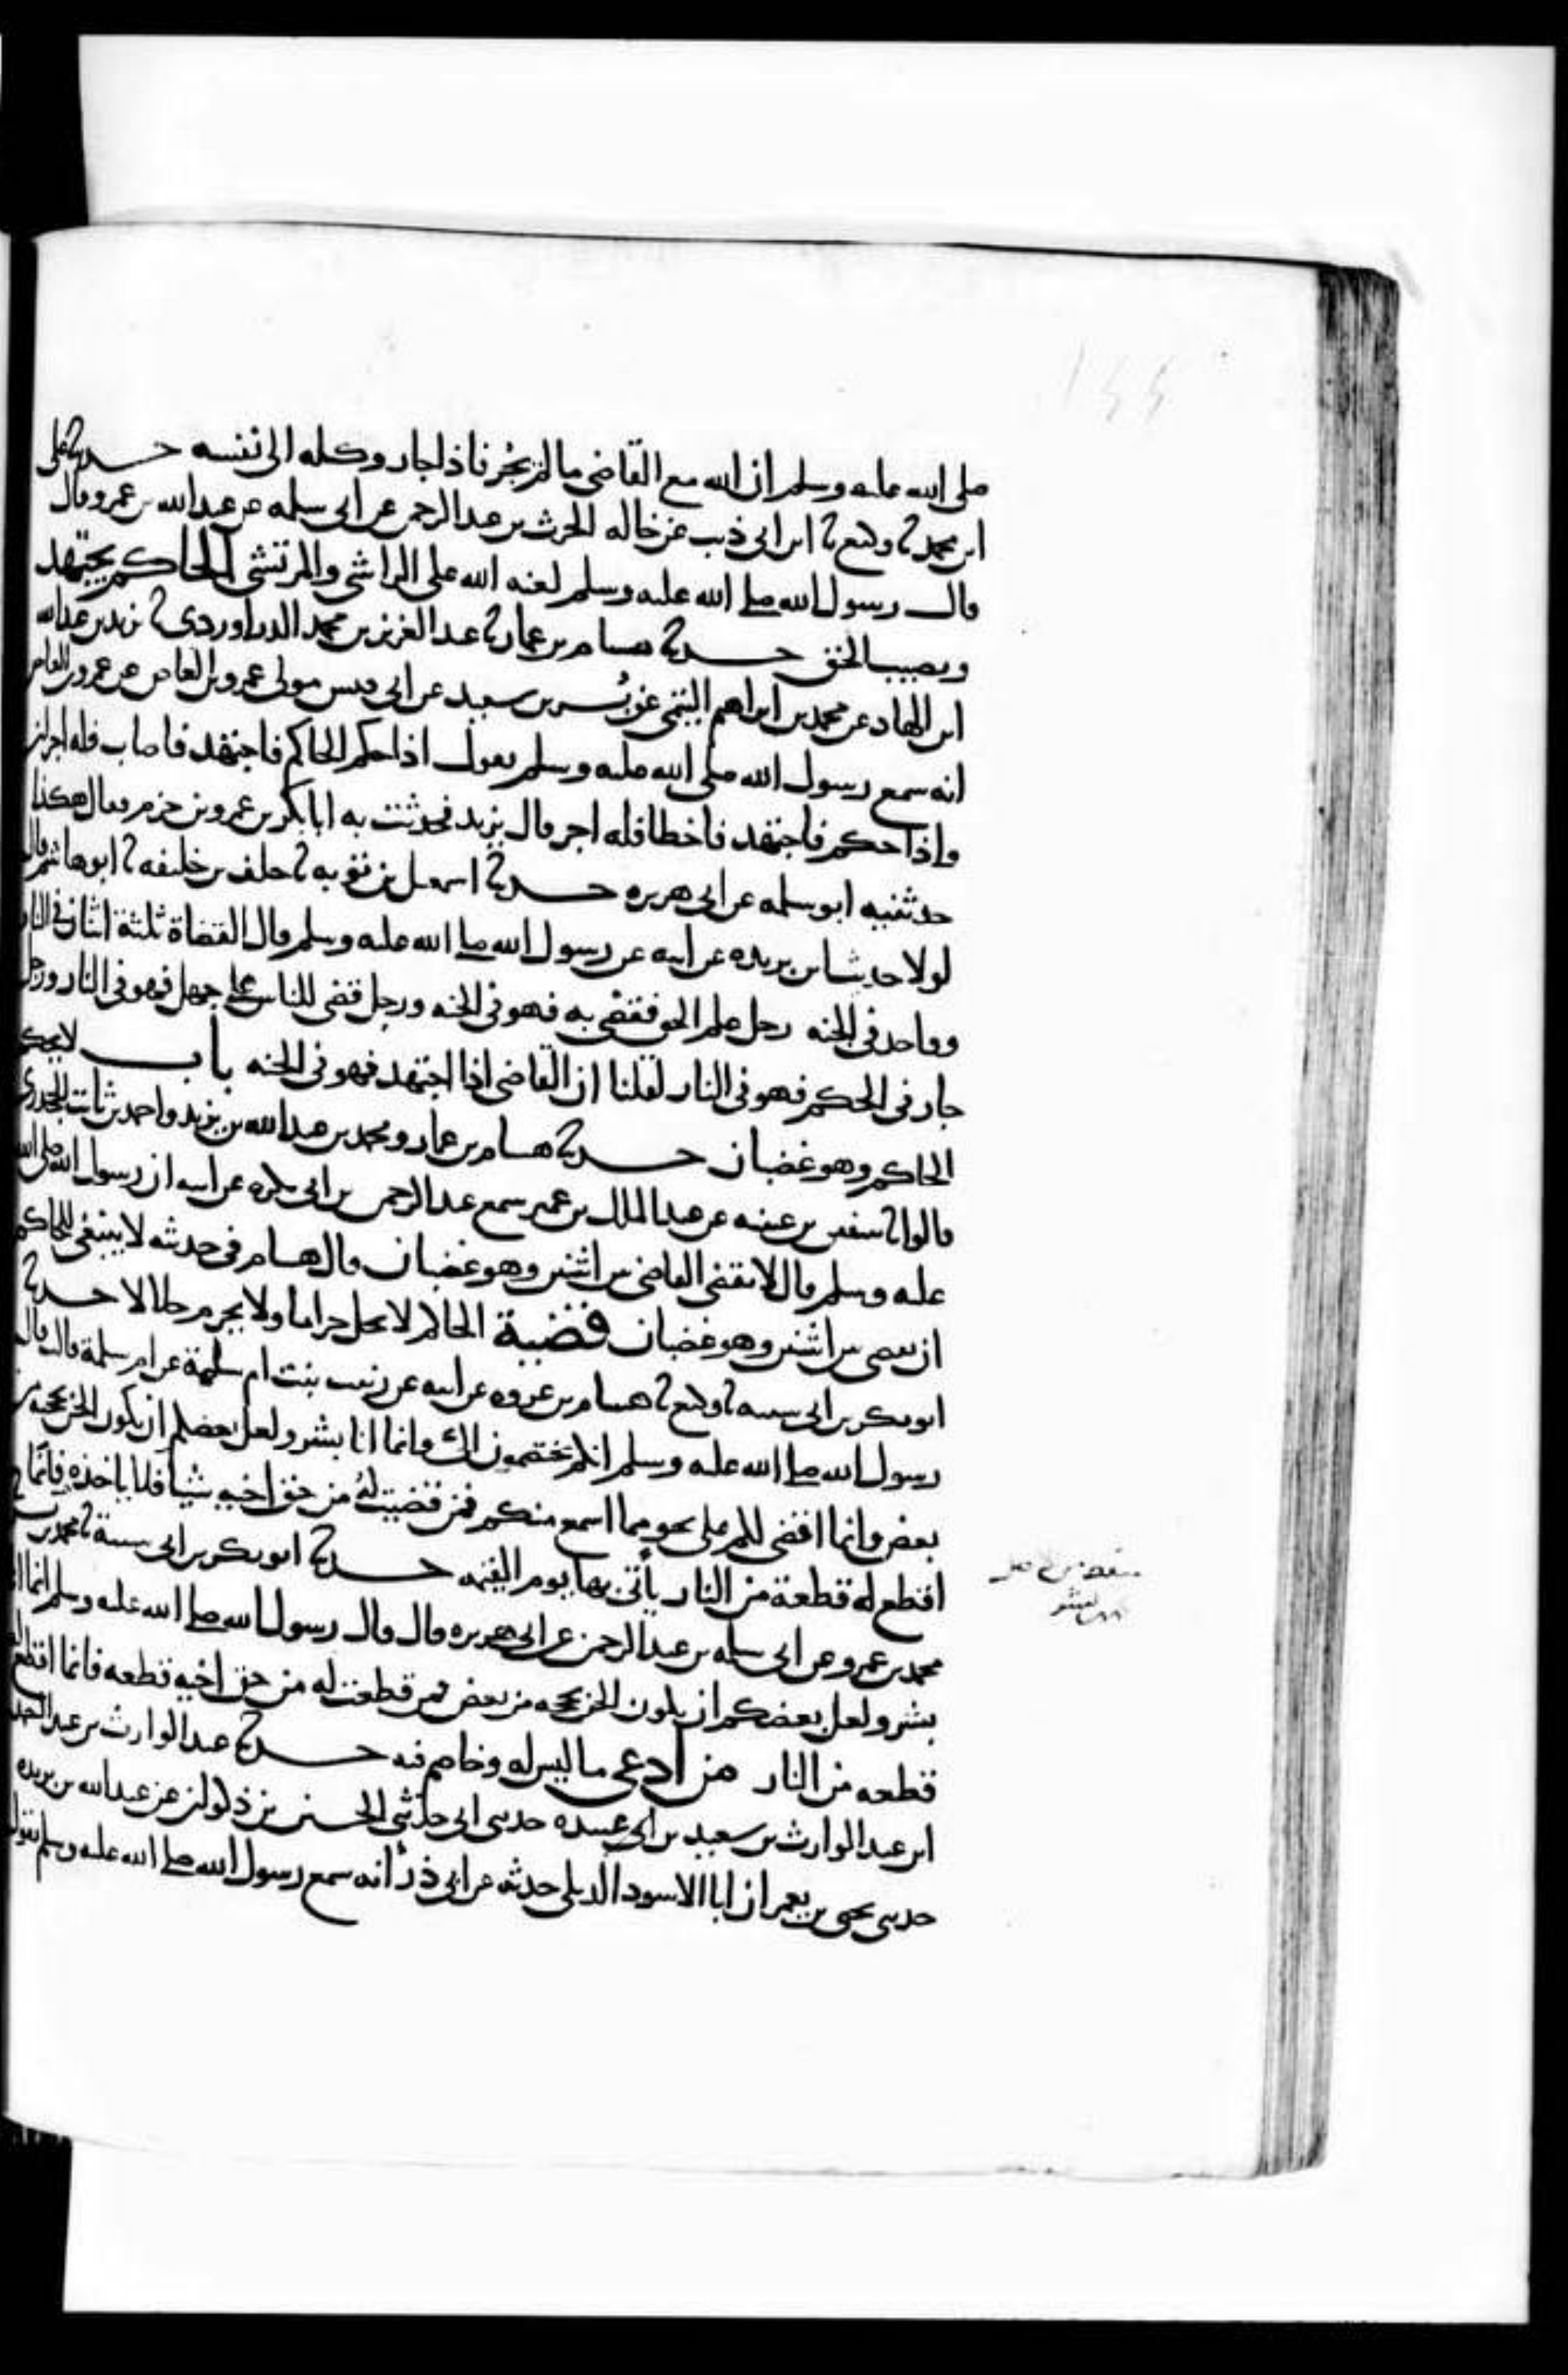 صلى الله عليه وسلم ان الله مع القاضى ما لم يجُر فاذا جار وكله الى نفسه حدثنا على
ابن محمد ثنا وكيع ثنا ابن ابى ذيب عن خاله الحرث بن عبد الرحمن عن ابى سلمه عن عبد الله بن عمرو قال
قال رسول الله صلى الله عليه وسلم لعنه الله على الراشى والمرتشى الحاكم يجتهد
ويصيب الحق حدثنا هشام بن عمار ثنا عبد العزيز بن محمد الدراوردى ثنا يزيد بن عبد الله
ابن الهاد عن محمد بن ابراهيم التيمى عن بُسر بن سعيد عن ابى قيس مولى عمرو بن العاص عن عمرو بن العاص
انه سمع رسول الله صلى الله عليه وسلم يقول اذا حكم الحاكم فاجتهد فاصاب فله اجران
واذا حكم فاجتهد فاخطا فله اجر قال يزيد فحدثت به ابا بكر بن عمرو بن حزم فقال هكذا
حدثنيه ابو سلمه عن ابى هريره حدثنا اسمعيل بن توبه ثنا خلف بن خليفه ثنا ابو هاشم قال
لولا حديث ابن بريده عن ابيه عن رسول الله صلى الله عليه وسلم قال القضاة ثلثة اثنان فى النار
وواحد فى الجنه رجل علم الحق فقضى به فهو فى الجنه ورجل قضى للناس على جهل فهو فى النار ورجل
جار فى الحكم فهو فى النار لقلنا ان القاضى اذا اجتهد فهو فى الجنه باب لا يحكم
الحاكم وهو غضبان حدثنا هشام بن عمار ومحمد بن عبد الله بن يزيد واحمد بن ثابت الجحدرى
قالوا ثنا سفين بن عيينه عن عبد الملك بن عمير سمع عبد الرحمن بن ابى بكره عن ابيه ان رسول الله صلى الله
عليه وسلم قال لا يقضى القاضى بين اثنين وهو غضبان قال هشام فى حديثه لا ينبغى للحاكم
ان يقضى بين اثنين وهو غضبان قضية الحاكم لا تحل حراما ولا تحرم حلالا حدثنا
ابو بكر بن ابى شيبه ثنا وكيع ثنا هشام بن عروه عن ابيه عن زينب بنت ام سلمة عن ام سلمة قالت قال
رسول الله صلى الله عليه وسلم انكم تختصمون الى وانما انا بشر ولعل بعضكم ان يكون الحن بحجته من
بعض وانما اقضى لكم على نحو مما اسمع منكم فمن قضيت لهُ من حق اخيه شيا فلا ياخذه فانما
اقطع له قطعة من النار يأتى بها يوم القيمه حدثنا ابو بكر بن ابى شيبة ثنا محمد بن بشر ثنا
محمد بن عمرو عن ابى سلمه بن عبد الرحمن عن ابى هريره قال قال رسول الله صلى الله عليه وسلم انما انا
بشر ولعل بعضكم ان يكون الحن بحجته من بعض فمن قطعت له من حق اخيه قطعه فانما اقطع له
قطعه من النار من ادعى ما ليس له وخاصم فيه حدثنا عبد الوارث بن عبد الصمد
ابن عبد الوارث بن سعيد بن ابى عبيده حدثنى ابى حدثنى الحسين بن ذكوان عن عبد الله بن بريده
حدثنى يحيى بن يعمر ان ابا الاسود الديلى حدثه عن ابى ذر انه سمع رسول الله صلى الله عليه وسلم يقول